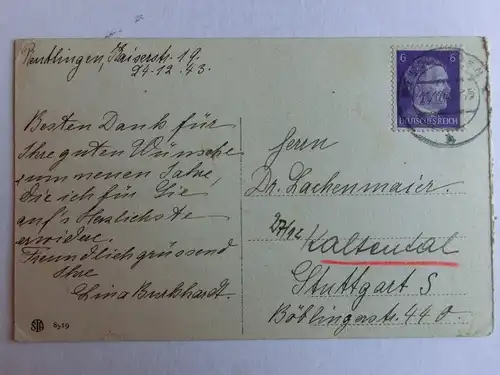 Reutlingen, Kaiserstr. 19.
24.12.43.
Besten Dank für
Ihre guten Wünsche
zum neuen Jahre,
die ich für Sie
auf's Herzlichste
erwidere.
Freundlich grüssend
Ihre
Lina Burkhardt.
STA 8519
6 6
DEUTSCHES REICH
Herrn
Dr. Lachenmaier.
27/12
Kaltental
Stuttgart S
Böblingerstr. 440.